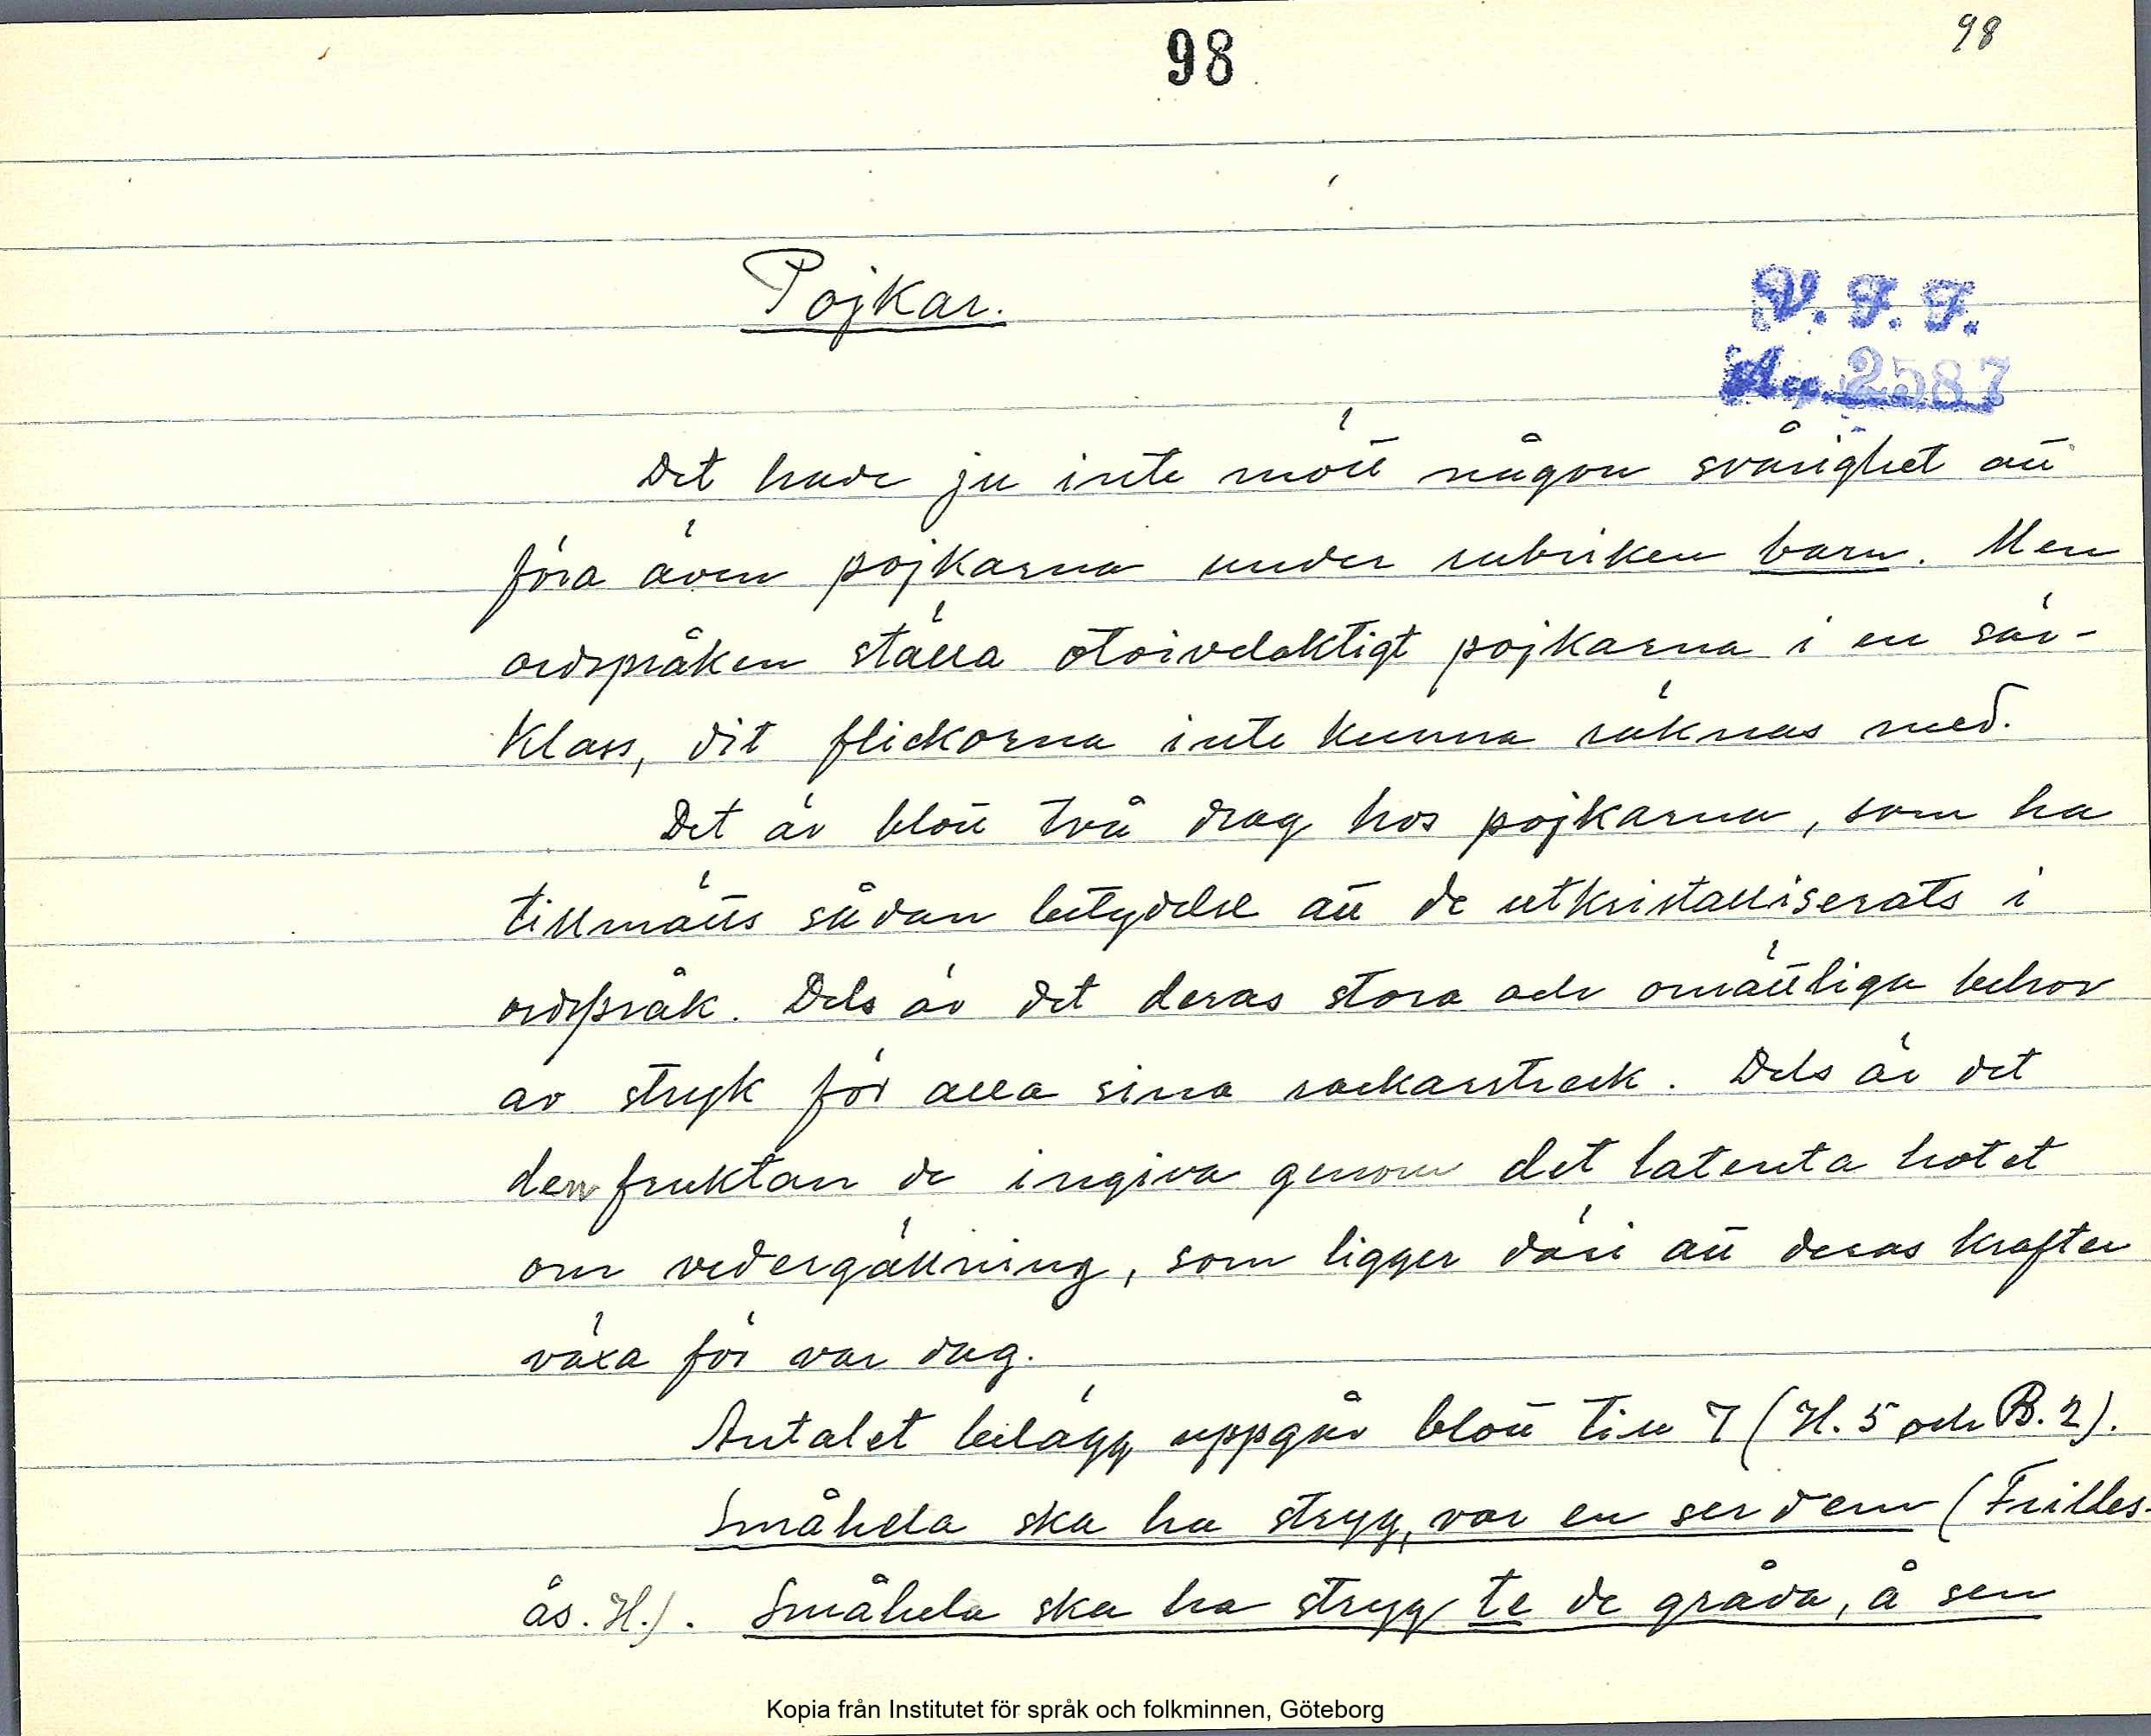 98
98
Pojkar.
V. F. F.
Acc. 2587
Det hade ju inte mött någon svårighet att
föra även pojkarna under rubriken barn. Men
ordspråken ställa otvivelaktigt pojkarna i en sär-
klass, dit flickorna inte kunna räknas med.
Det är blott två drag hos pojkarna, som ha
tillmätts sådan betydelse att de utkristalliserats i
ordspråk. Dels är det deras stora och omättliga behov
av stryk för alla sina rackarstreck. Dels är det
den fruktan de ingiva genom det latenta hotet
om vedergällning, som ligger däri att deras krafter
växa för var dag.
Antalet belägg uppgår blott till 7 (H. 5 och B. 2).
Småhela ska ha strygg, var en ser dem (Frilles-
ås. H.). Småhela ska ha strygg te de gråda, å sen
Kopia från Institutet för språk och folkminnen, Göteborg